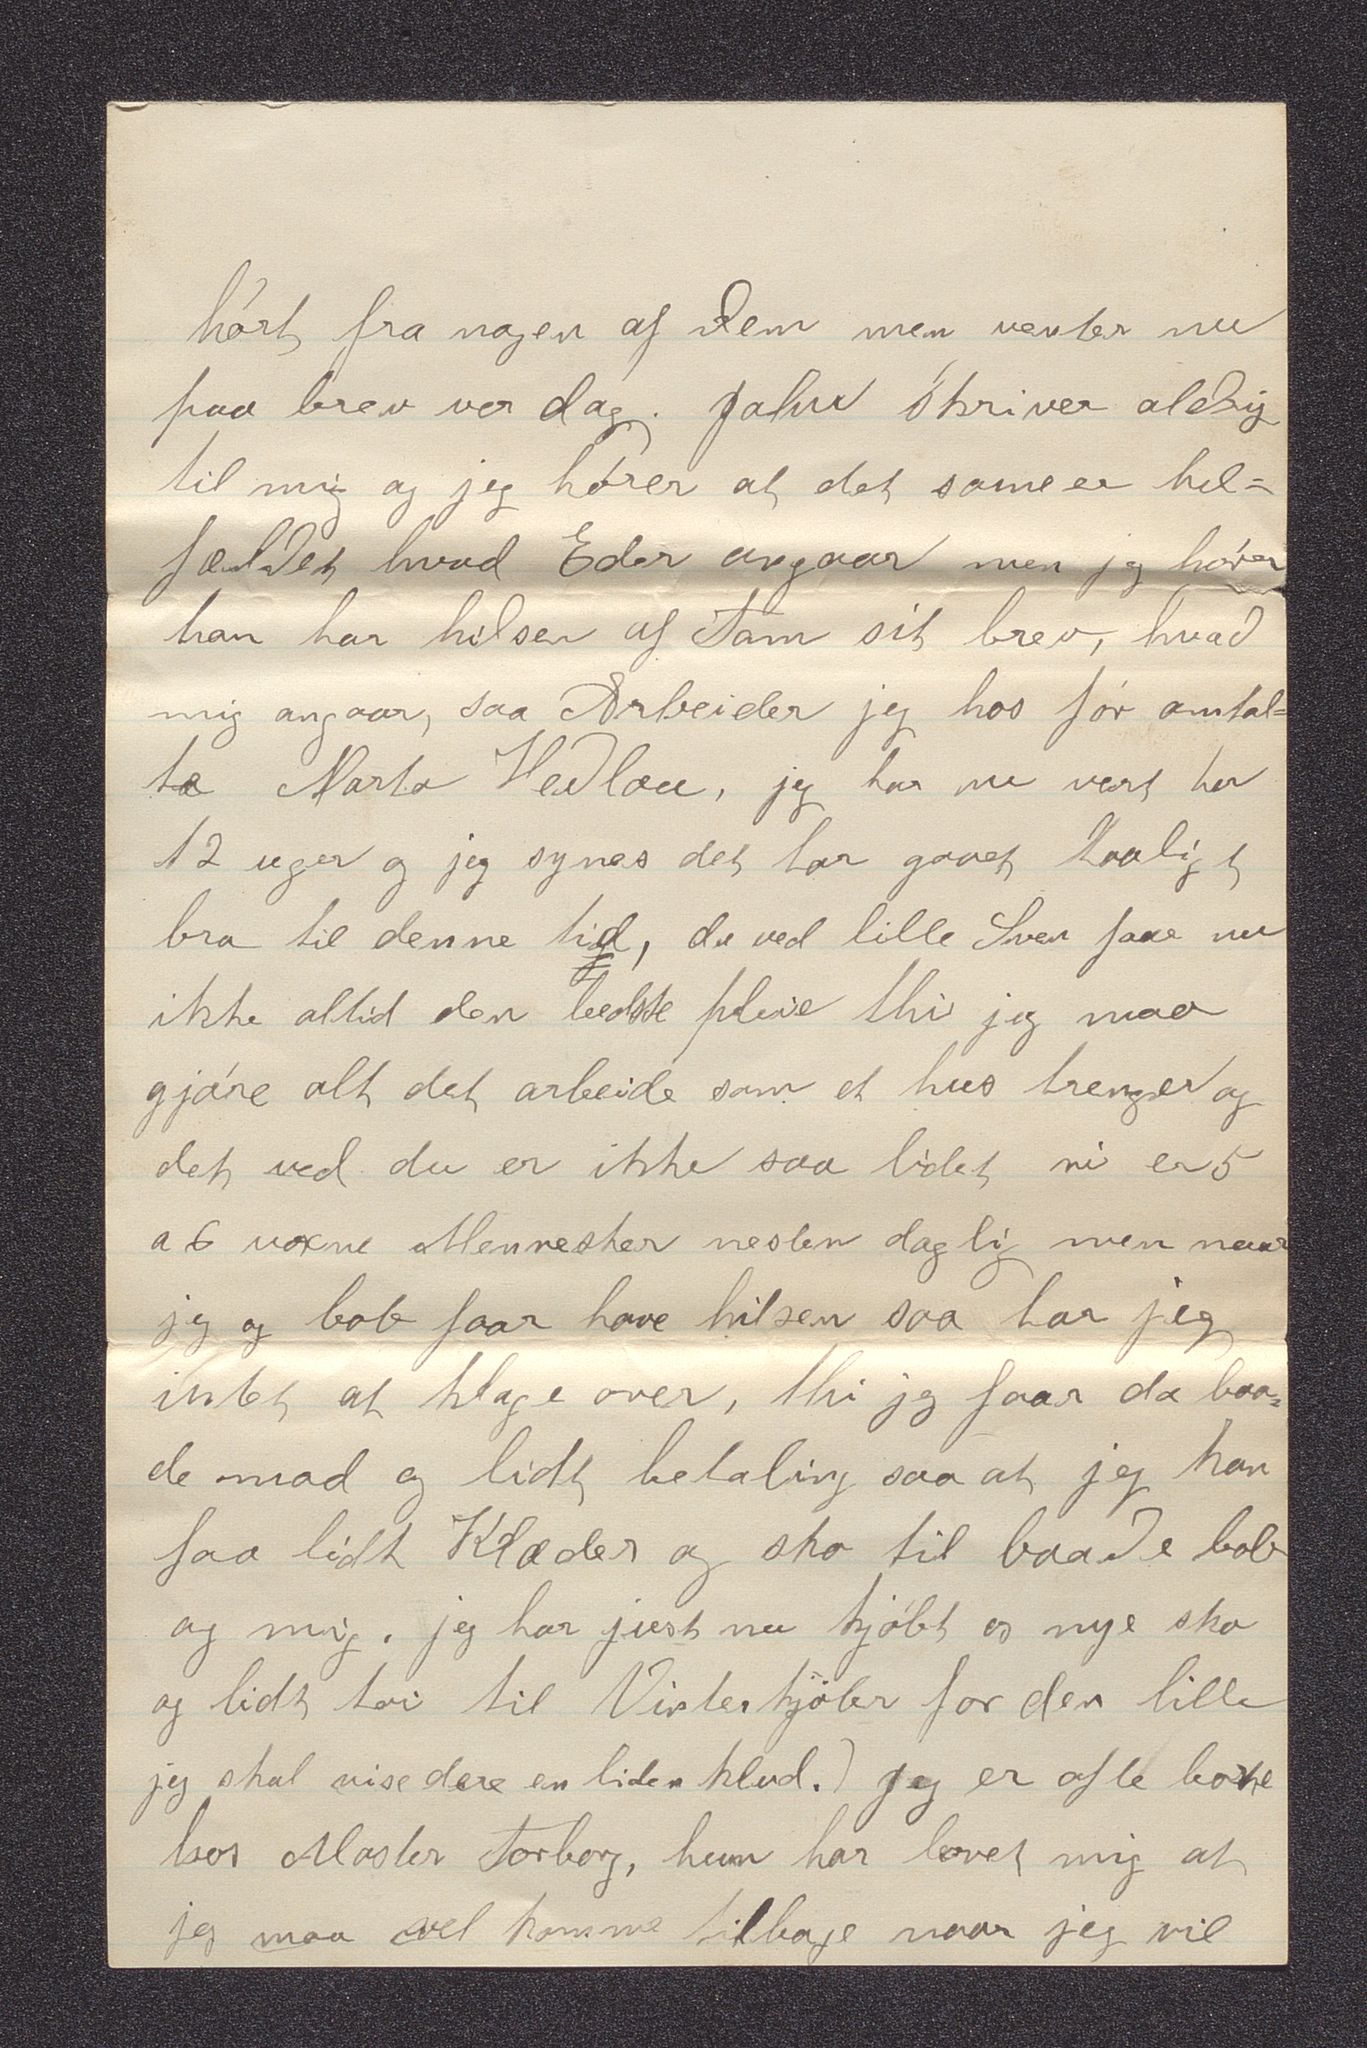 hørt fra nogen af dem men venter nu
paa brev ver dag. John skriver aldrig
til mig og jeg hører at det same er hel=
fældet hvad Eder angaar men jeg hører
han har hilsen af Tam sit brev, hvad
mig angaar, saa Arbeider jeg hos før omtal=
te Marta Hedlau, jeg har nu vert her
12 uger og jeg synes det har gaaet taalig t
bra til denne tid, du ved lille Sven faar nu
ikke altid den bedste pleie thi jeg maa
gjøre alt det arbeide som et hus trenger og
det ved du er ikke saa lidet vi er 5
a 6 voxne Mennesker nesten daglig men naar
jeg og bob faar have hilsen saa har jeg
intet at klage over, thi jeg faar da baa=
de mad og lidt betaling saa at jeg kan
faa lidt Klæder og sko til baade bob
og mig. jeg har just nu kjøbt os nye sko
og lidt toi til Vinterkjoler for den lille
jeg skal vise dere en liden klud.) jeg er ofte borte
hos Moster Torborg, hun har lovet mig at
jeg maa vel komme tilbage naar jeg vil